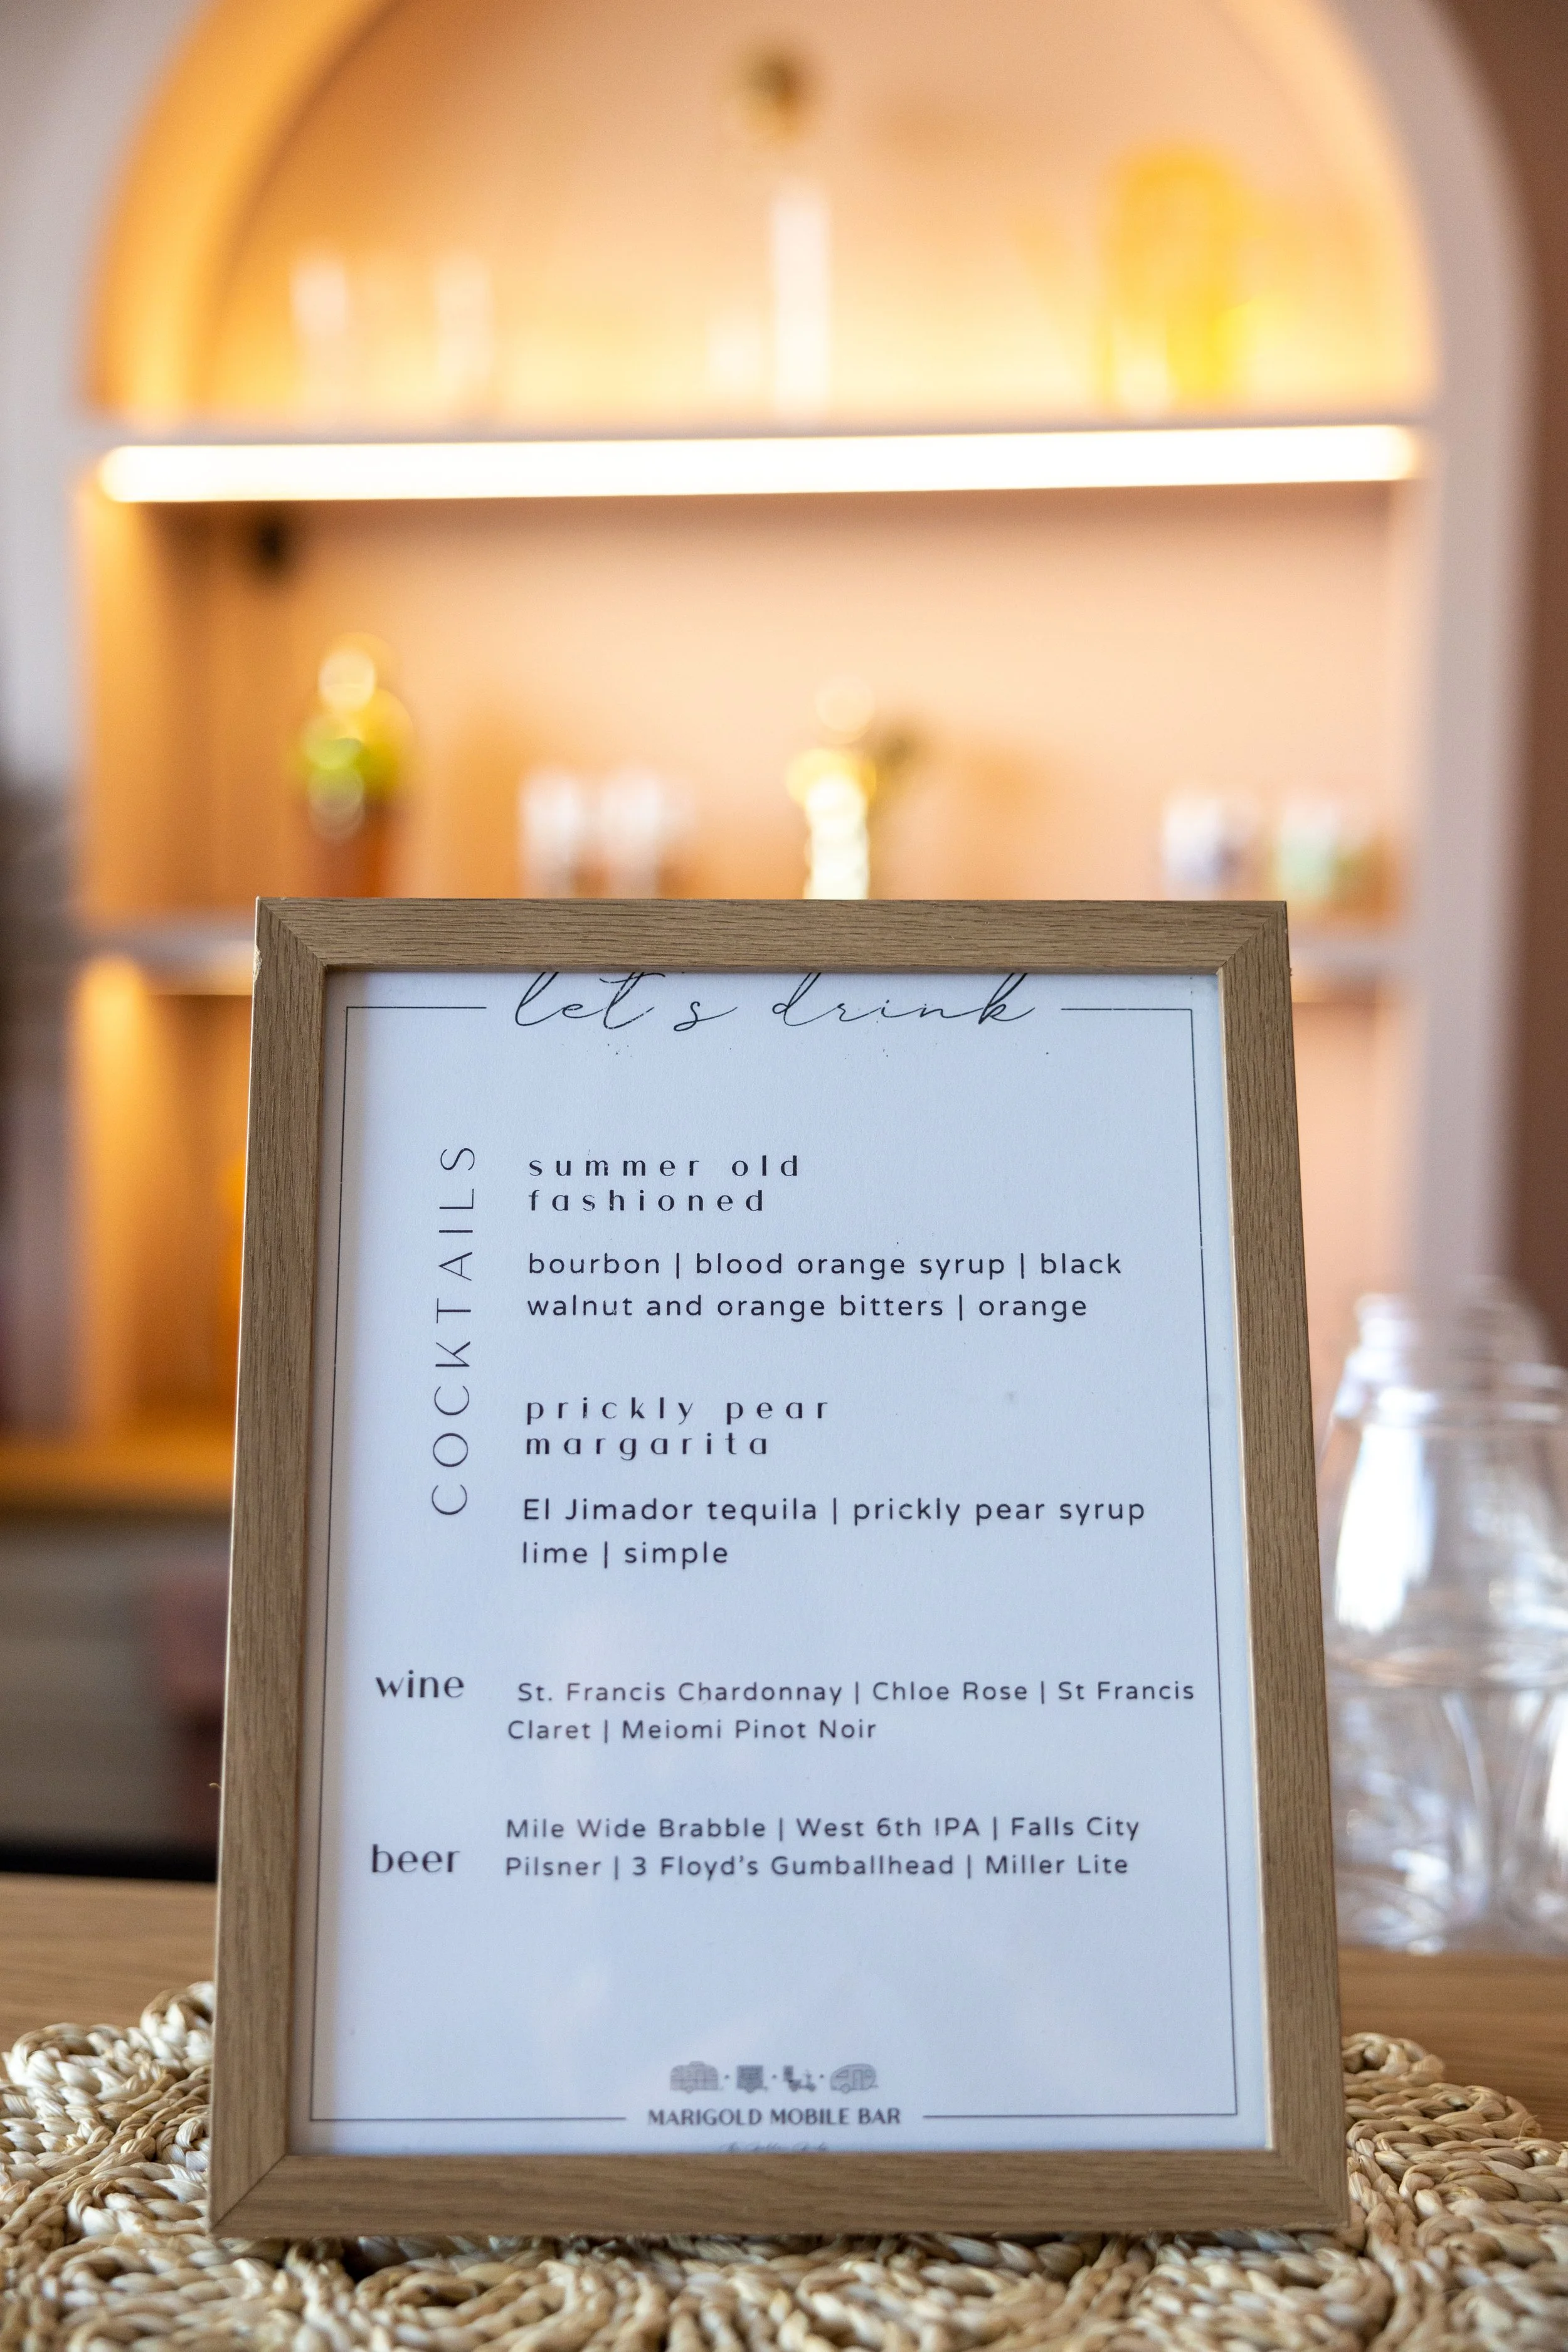 let's drink
COCKTAILS
summer old
fashioned
bourbon | blood orange syrup | black
walnut and orange bitters | orange
prickly pear
margarita
El Jimador tequila | prickly pear syrup
lime | simple
wine
St. Francis Chardonnay | Chloe Rose | St Francis
Claret | Meiomi Pinot Noir
beer
Mile Wide Brabble | West 6th IPA | Falls City
Pilsner | 3 Floyd's Gumballhead | Miller Lite
MARIGOLD MOBILE BAR